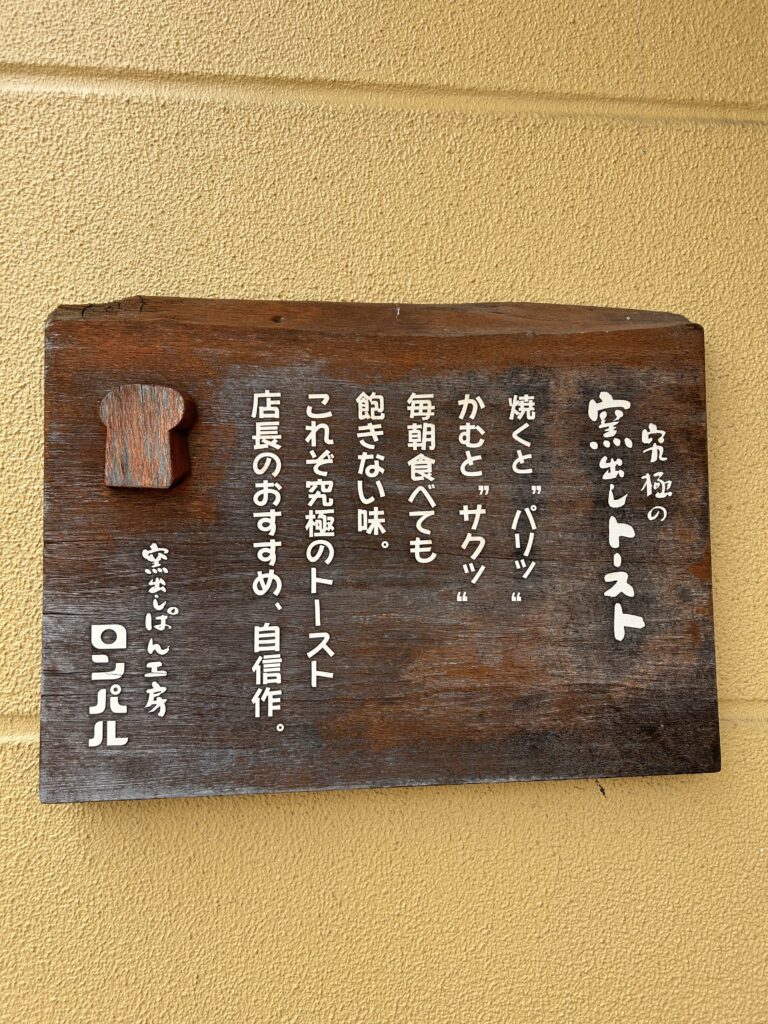 究極の
窯出しトースト
焼くと”パリッ“
かむと”サクッ“
毎朝食べても
飽きない味。
これぞ究極のトースト
店長のおすすめ、自信作。
窯出しぱん工房
ロンパル